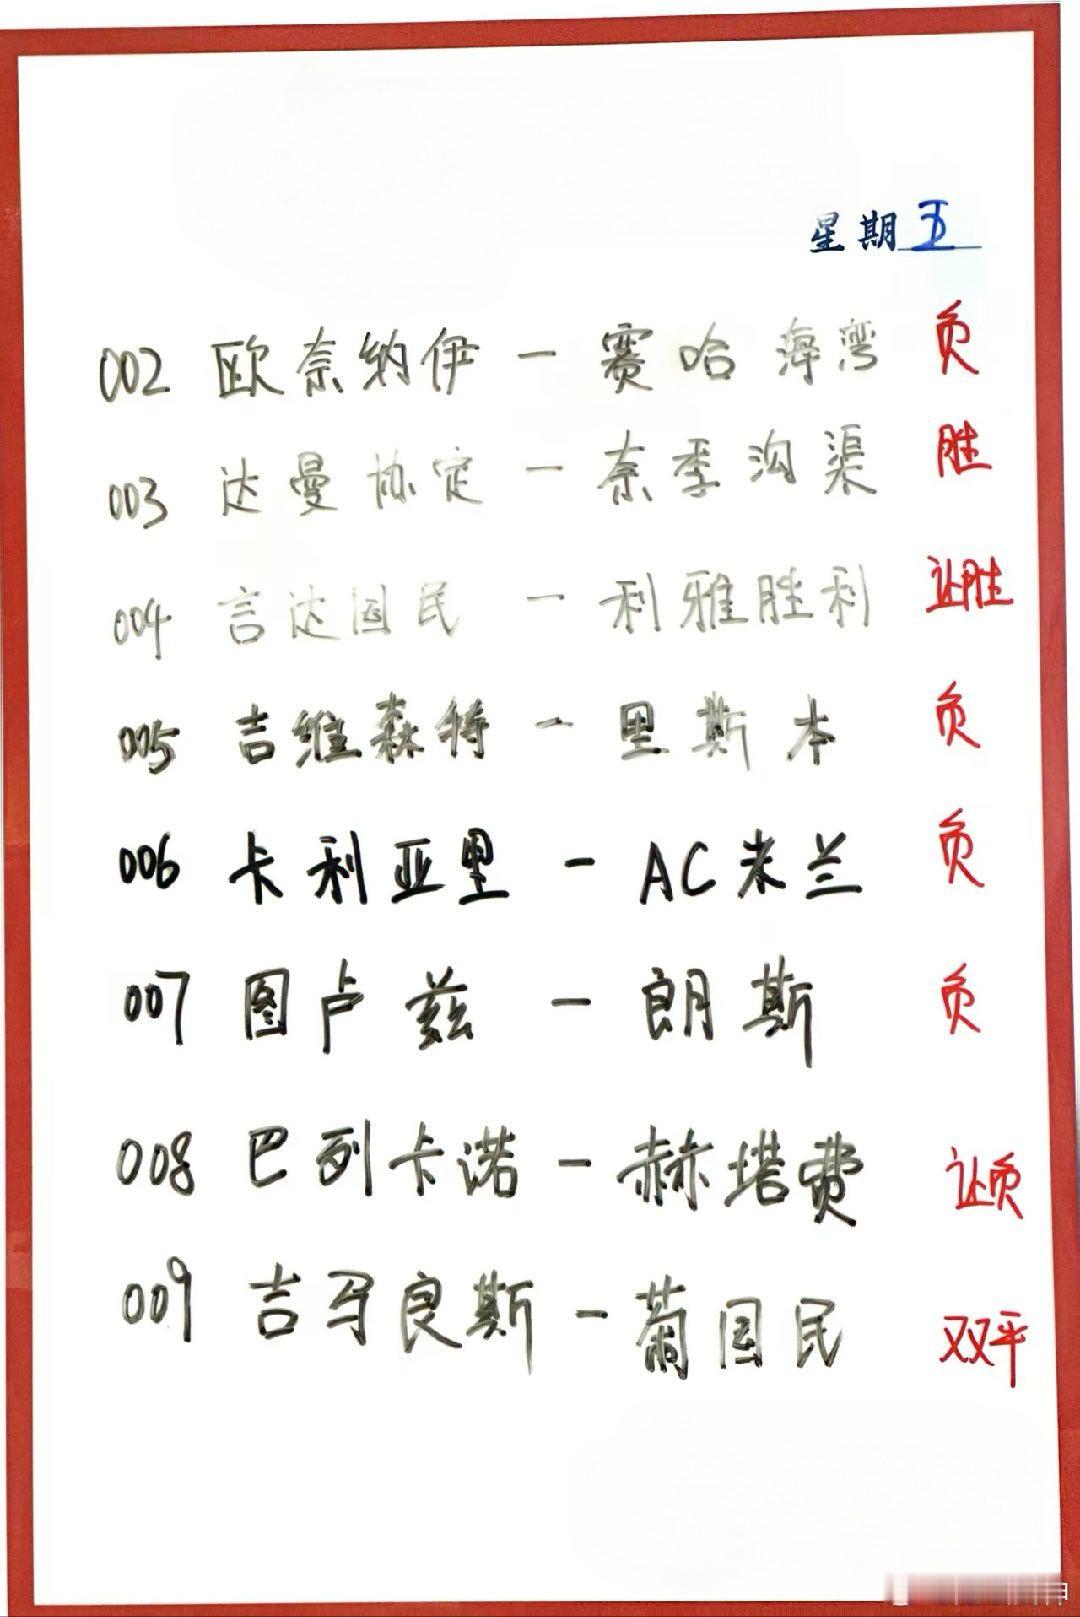 星期五
002 欧奈纳伊 - 赛哈海湾 负
003 达曼协定 - 奈季沟渠 胜
004 言达国民 - 利雅胜利 让胜
005 吉维森特 - 里斯本 负
006 卡利亚里 - AC米兰 负
007 图卢兹 - 朗斯 负
008 巴列卡诺 - 赫塔费 让负
009 吉马良斯 - 葡国民 双平